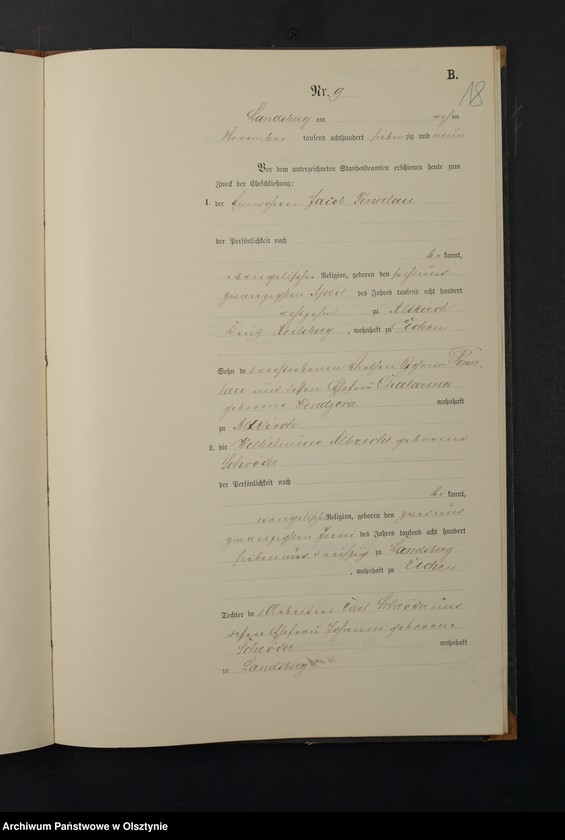 B.
18
Nr. 9
Landsberg am
November tausend achthundert siebenzig und neun
Vor dem unterzeichneten Standesbeamten erschienen heute zum
Zweck der Eheschließung:
1. der Jacob
der Persönlichkeit nach
be kannt,
evangelischer Religion, geboren den sechsund
zwanzigsten April des Jahres tausend acht hundert
zu Altkirch
Kreis Heilsberg, wohnhaft zu Eichen
Sohn des verstorbenen Johann
und dessen Ehefrau Chatarina
geborene wohnhaft
zu Altkirch
2. die Wilhelmine Albrecht geborene
Schröder
der Persönlichkeit nach
be kannt,
evangelischer Religion, geboren den zweiund
zwanzigsten Juni des Jahres tausend acht hundert
siebenunddreißig zu Landsberg
, wohnhaft zu Eichen
Tochter des Arbeiters Carl Schröder und
dessen Ehefrau geborene
Schröder wohnhaft
zu Landsberg
Archiwum Państwowe w Olsztynie